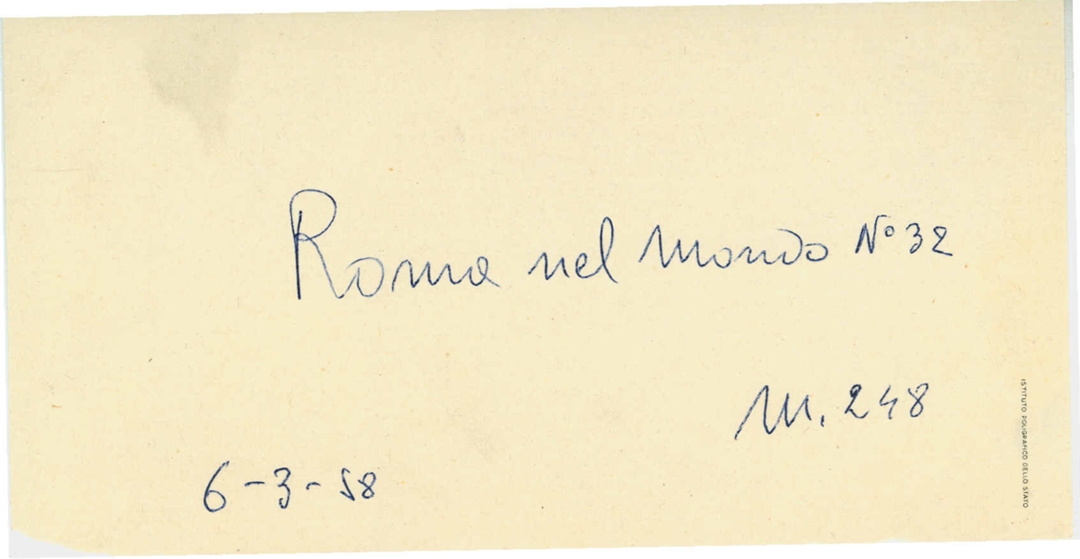 Roma nel mondo N° 32
m. 248
6-3-58
ISTITUTO POLIGRAFICO DELLO STATO